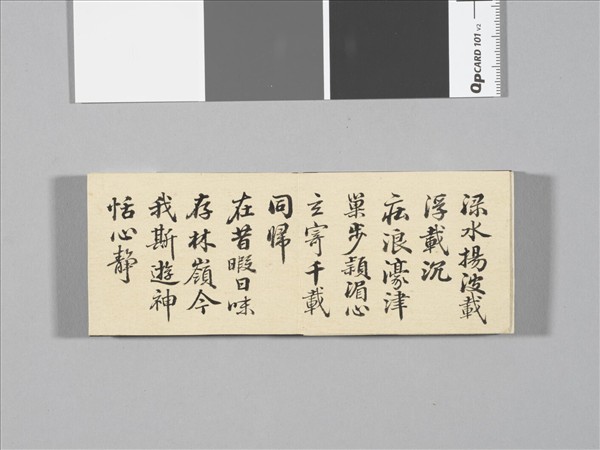 渌水揚波載
浮載沉
莊浪濠津
巢步潁湄心
立寄千載
同歸
在昔暇日味
存林嶺今
我斯遊神
恬心靜
QpCARD 101 v2